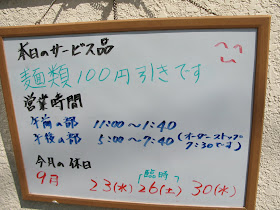 本日のサービス品
麺類100円引きです
営業時間
午前の部 11:00～1:40
午後の部 5:00～7:40(オーダーストップ 7:30です)
今月の休日
「臨時」
9月 23(水) 26(土) 30(水)